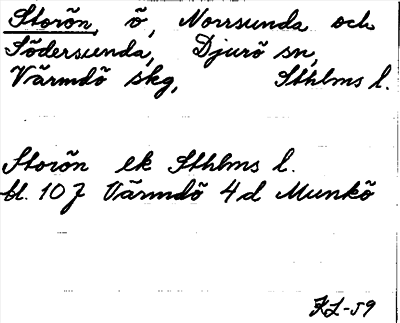 Storön, ö, Norrsunda och
Södersunda, Djurö sn,
Värmdö skg, Sthlms l.
Storön ek Sthlms l.
bl. 107 Värmdö 4d Munkö
KL-59